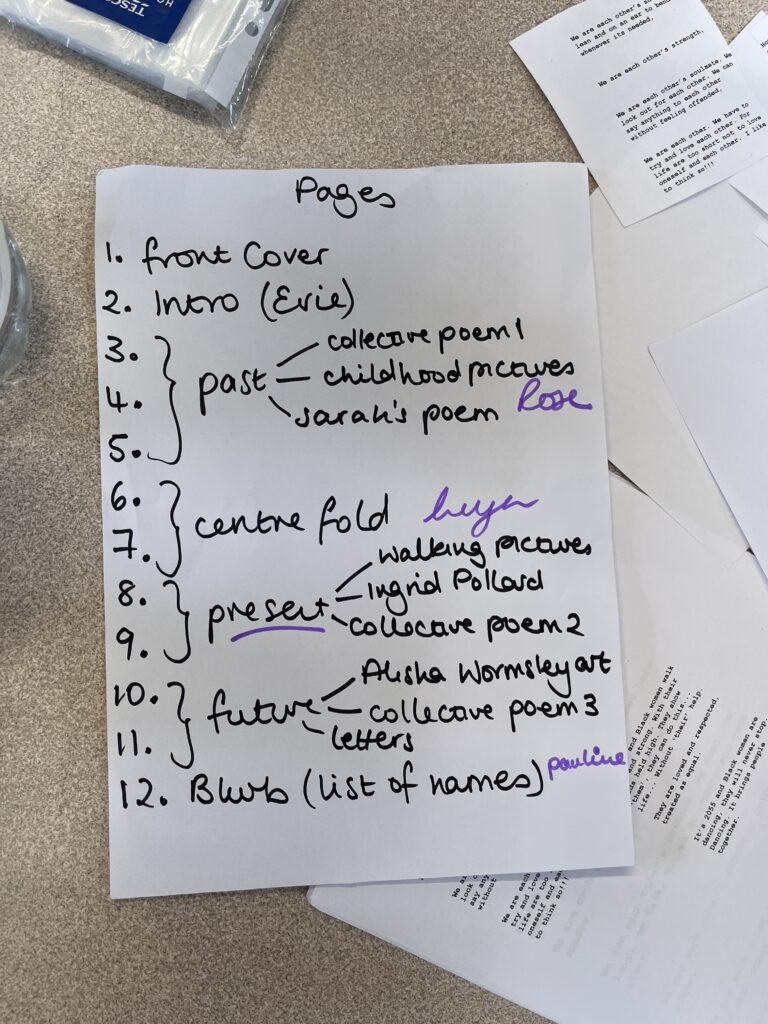 TESCO
We are each other's
lean and on an ear to bend
whenever its needed,
We are each other's strength,
We are each other's soulmate. We
look out for each other. We can
say anything to each other
without feeling offended.
We are each other. We have to
try and love each other. For
life are too short not to love
oneself and each other. I like
to think so!!!
Pages
1. front Cover
2. Intro (Evie)
3.
4.
5.
past
collective poem 1
childhood pictures
sarah's poem Rose
6.
7.
centre fold
8.
9.
present
walking pictures
Ingrid Pollard
collective poem 2
10.
11.
future
Alisha Wormsley art
collective poem 3
letters
12. Blurb (list of names) pauline
and Black women walk
and strong. With their
held high. They show
'them', they can do this...
life... Without 'their' help.
They are loved and respected,
treated as equal.
It's 2055 and Black women are
dancing, they will never stop.
Dancing. It brings people
together.
We
look
say any
without
We are each
try and love
life are too
oneself and e
to think so!!!